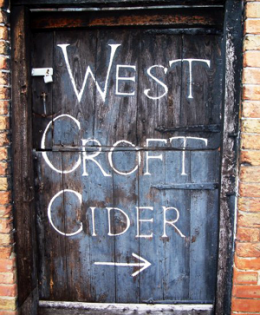 West
Croft
Cider
→